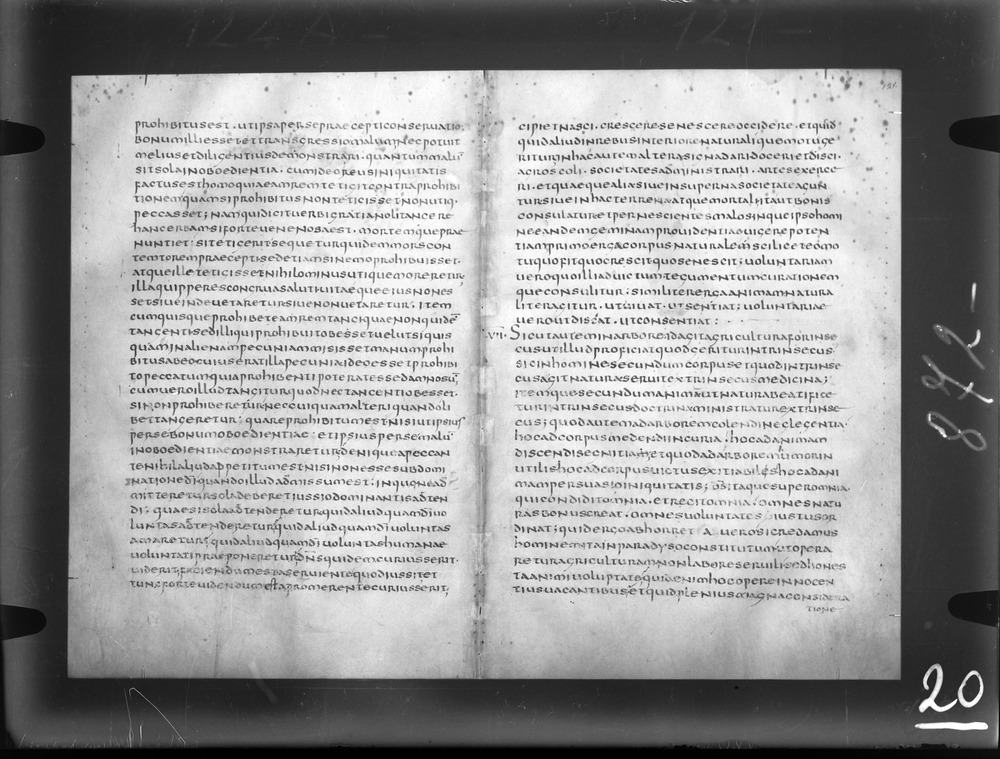 124A-
121-
121.
prohibitusest. utipsaperse praecepti conseruatio
bonumilliesset et transgressiomalum necpotuit
meliusetdiligentiusdemonstrari. quantummalū
sitsolainoboedientia. cumideoreusiniquitatis
factusesthomoquiaeamremtetigitcontraprohibi
tionemquamsiprohibitusnontetigissetnonutiq.
peccasset; namquidiciturerbigratianolitangere
hancerbamsiforteuenenosaest. mortemquеprae
nuntiet: sitetigeritsequeturquidemmorscon
temtorempraeceptisedetiamsinemoprohibuisset.
atqueilletetigissetnihilominusutiquemoreretur
illaquippe resconcrariasaluti uitaequeeiusnones
setsiueindeuetaretursiuenonuetaretur; item
cumquisqueprohibeteamremtangiquaenonquidē
tangentisedilliquiprohibuitobessetuelutsiquis
quaminalienampecuniammisissetmanumprohi
bitusabeocuiuseratillapecuniaideoessetprohibi
topeccatumquiaprohibentipoteratessedamnosū
cumueroilludtangiturquodnectangentiobesset.
sinonprohiberetur.neccuiquamalteriquandoli
bettangeretur; quareprohibitumestnisiutipsius
persebonumoboedientiae. etipsiuspersemalū
inoboedientiaemonstraretur; deniqueapeccan
tenihilaliudappetitumestnisinonessesubdomi
nationedīquandoilludadmissumest. inquonead
mitteretursoladeberetiussiodominantisadten
di. quaesisolaadtenderetur.quidaliudquamdīuo
luntasadtenderetur;quidaliudquamdīuoluntas
amaretur; quidaliudquamdīuoluntashumanae
uoluntatipraeponeretur;dn̄squidemcuriusserit.
uideritfaciendumestaseruientequodiussitet
tuncforteuidendumestapromerentecuriusserit;
cipietnasci. cresceresenescereoccidere. etquid
quidaliudinrebusinteriorenaturaliquemotuge
riturinhacautemalterasignadaridoceriеtdisci.
agroscoli. societatesadministrari. artesexerce
ri. etquaequealiasiueinsupernasocietateagun
tursiueinhacterrenaatquemortali.itautbonis
consulaturetpernescientesmalosinqueipsohomi
neeandemgeminamprouidentiauigerepoten
tiamprimoergacorpusnaturalemscilicеteomo
tuquofitquocrescitquosenescit; uoluntariam
ueroquoilliaduictumtegumentumcurationem
queconsulitur; similitererga animamnatura
literagitur. utuiuat. utsentiat; uoluntariae
uero utdiscat. utconsentiat;
·VIIII· Sicutauteminarboreidagitagriculturaforinse
cusutilludproficiatquodgeriturintrinsecus.
sicinhominesecundumcorpusetquodintrinse
cusagitnaturaseruitextrinsecusmedicina;
itemquesecundumanimamutnaturabeatifice
turintrinsecusdoctrinaministraturextrinse
cus; quodautemadarboremcolendineglegentia.
hocadcorpusmedendiincuria. hocadanimam
discendisegnitia;etquodadarboremumorin
utilishocadcorpusuictusexitiabilishocadani
mampersuasioiniquitatis; dś itaquesuperomnia.
quicondiditomnia.etregitomnia. omnesnatu
rasbonuscreat. omnesuoluntatesiustusor
dinat; quidergoabhorretaue rosicredamus
hominemitainparadysoconstitutumutopera
returagriculturamnonlaboreseruilisedhones
taanimiuoluptatequidenimhocopereinnocen
tiusuacantibus.etquidpleniusmagnaconsidera
tione
872-
20